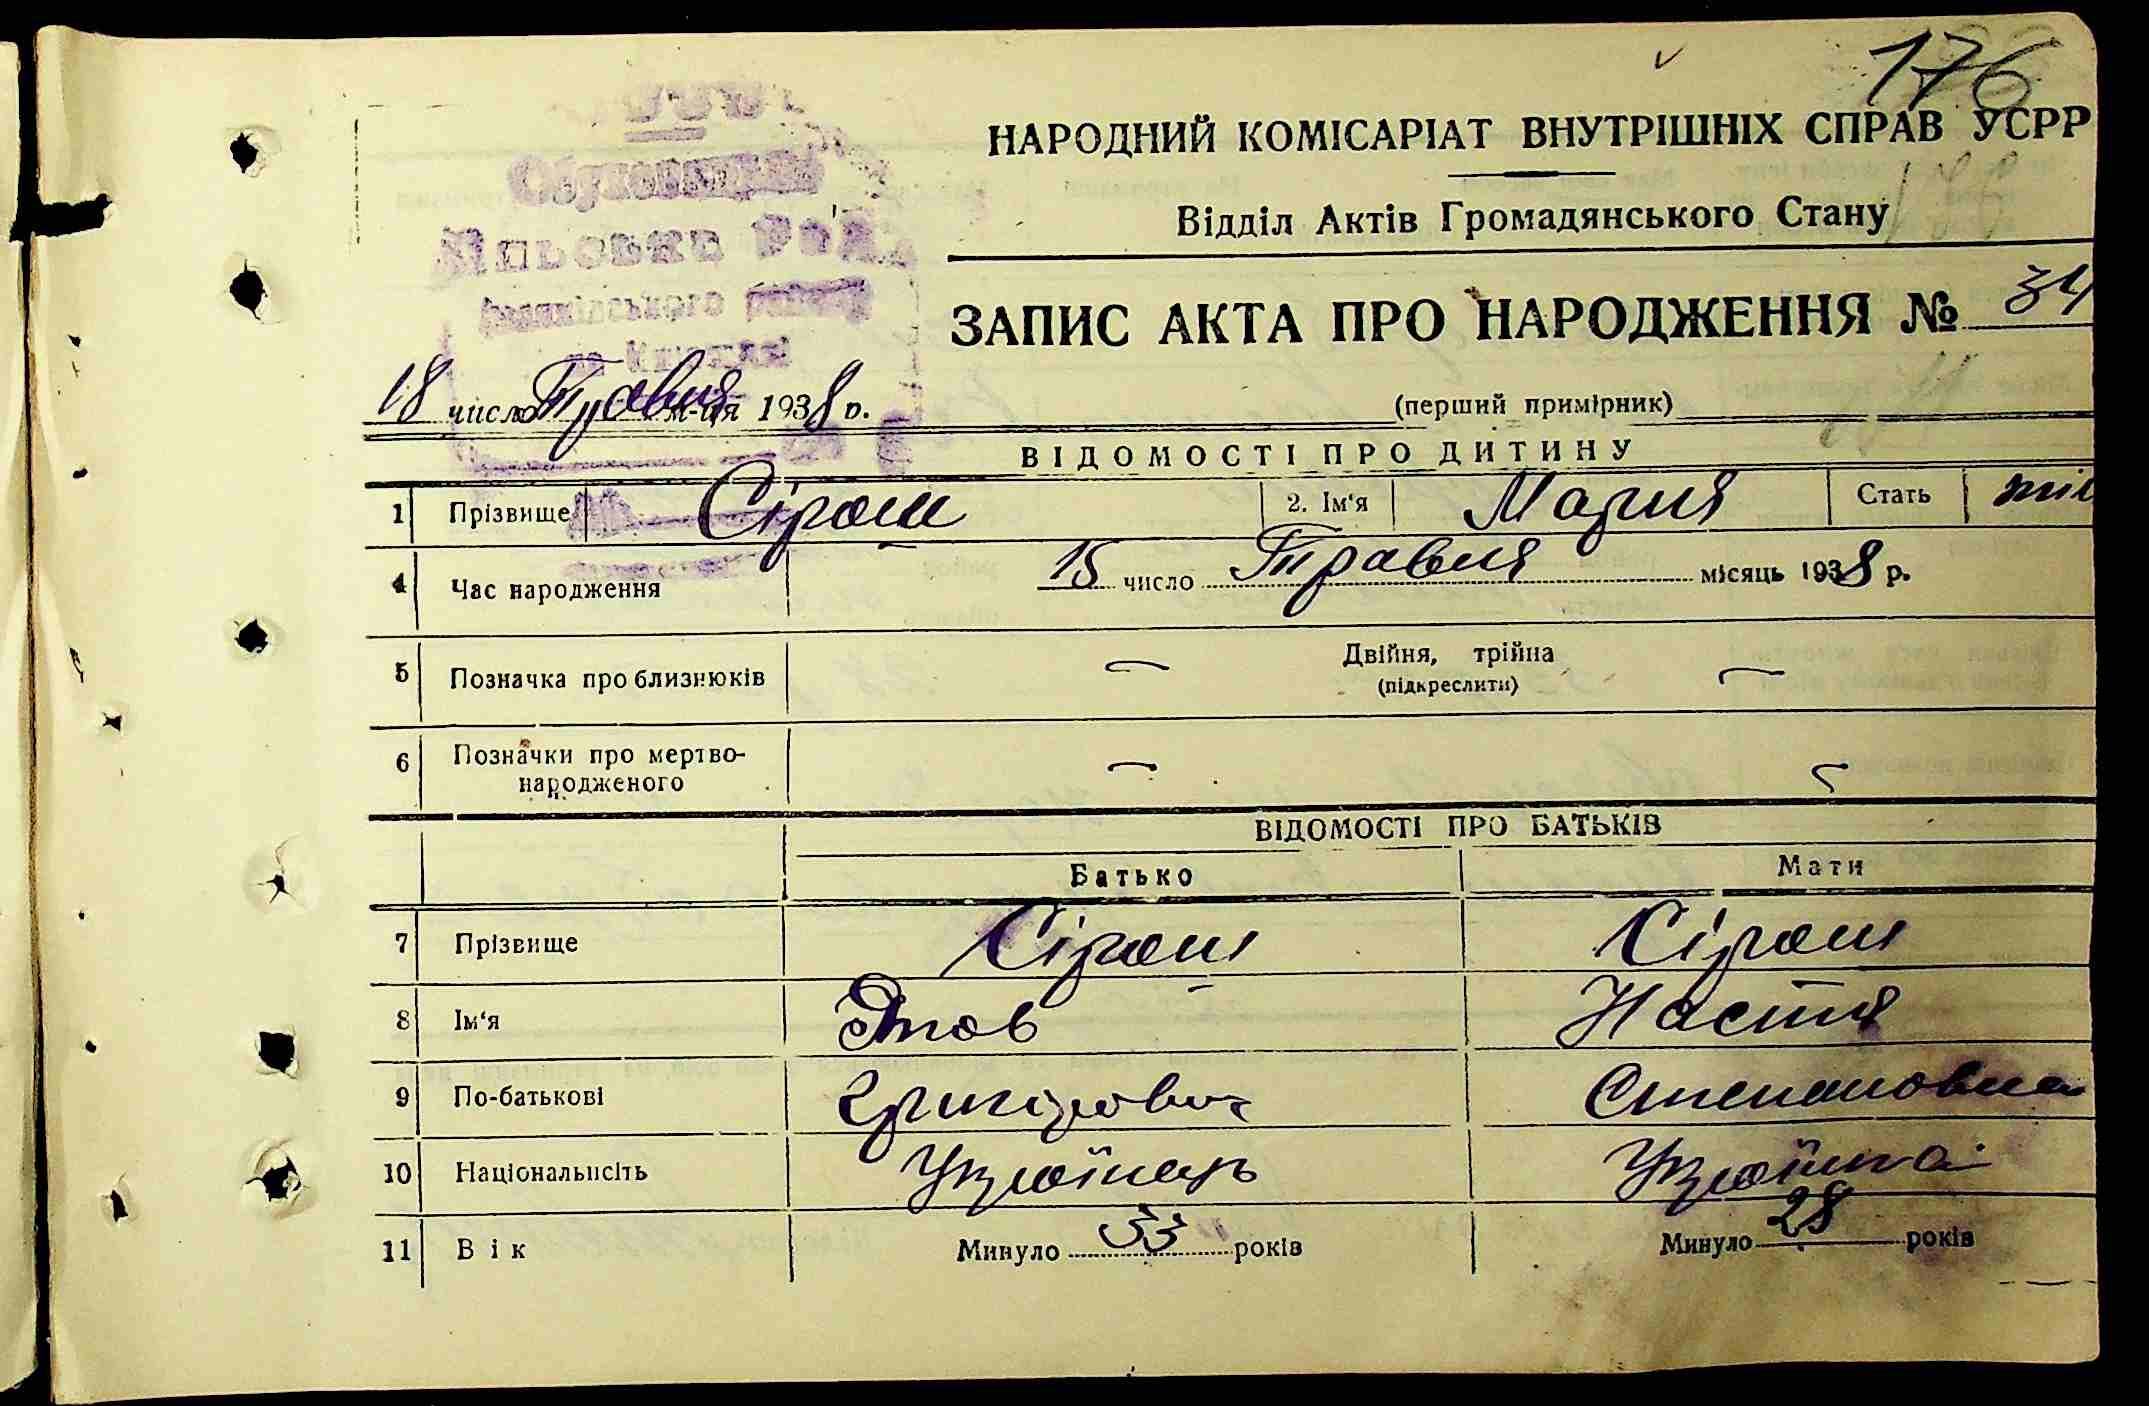 176
НАРОДНИЙ КОМІСАРІАТ ВНУТРІШНІХ СПРАВ УСРР
Відділ Актів Громадянського Стану
ЗАПИС АКТА ПРО НАРОДЖЕННЯ № 34
18 число Травня м-ця 1938 р.
(перший примірник)
ВІДОМОСТІ ПРО ДИТИНУ
1 Прізвище Сіраш 2. Ім'я Мария Стать жін
4 Час народження 15 число Травня місяць 1938 р.
5 Позначка про близнюків — Двійня, трійна —
(підкреслити)
6 Позначки про мертво-
народженого — —
ВІДОМОСТІ ПРО БАТЬКІВ
Батько Мати
7 Прізвище Сіраш Сіраш
8 Ім'я Яков Настя
9 По-батькові Григорович Степановна
10 Національність Українець Українка
11 Вік Минуло 33 років Минуло 28 років